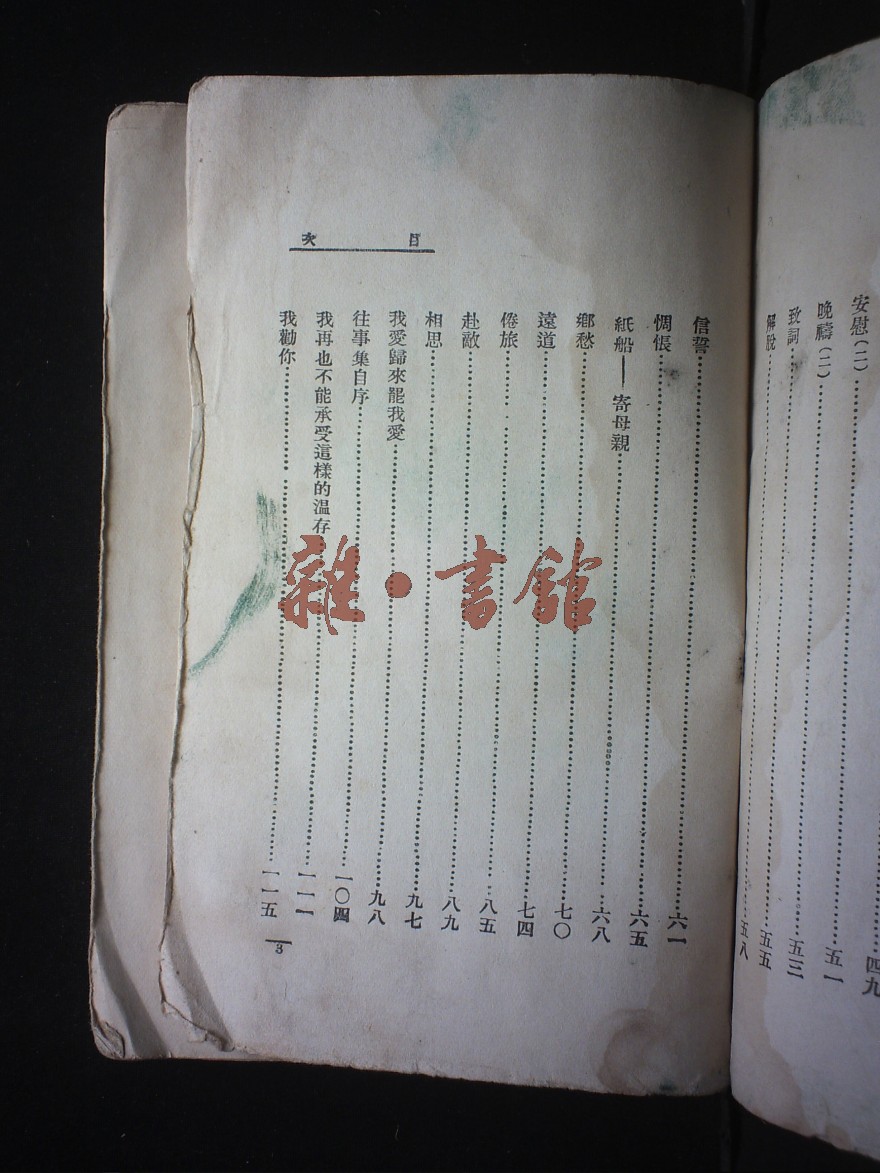 安慰(二)……四九
晚禱(二)……五一
致詞……五三
解脫……五五
五八
目次
信誓……六一
惆悵……六五
紙船——寄母親……六八
鄉愁……七〇
遠道……七四
倦旅……八五
赴敵……八九
相思……九七
我愛歸來罷我愛……九八
往事集自序……一〇四
我再也不能承受這樣的溫存……一一一
我勸你……一一五
3
雜·書館